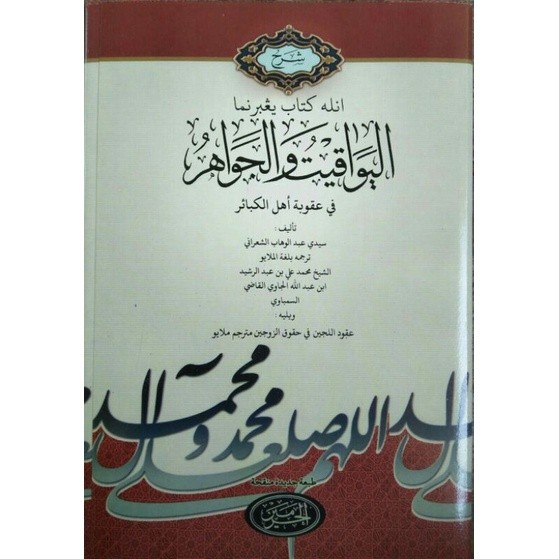 شرح
انله كتاب يڠبرنما
اليواقيت والجواهر
في عقوبة أهل الكبائر
تأليف :
سيدي عبد الوهاب الشعراني
ترجمه بلغة الملايو
الشيخ محمد علي بن عبد الرشيد
ابن عبد الله الجاوي القاضي
السمباوي
ويليه :
عقود اللجين في حقوق الزوجين مترجم ملايو
طبعة جديدة منقحة
الحرمين